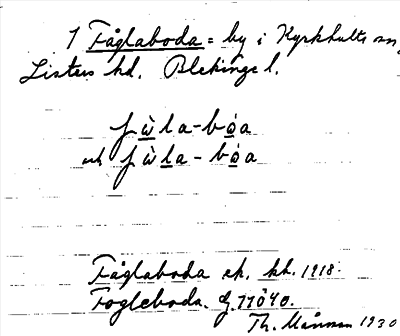 1 Fåglaboda = by i Kyrkhults sn,
Listers hd. Blekinge l.
f ẁ l a - b o a
och f ẁ l a - b o a
Fåglaboda ek. kb. 1918.
Fogleboda. G.
Th. Månsson 1930